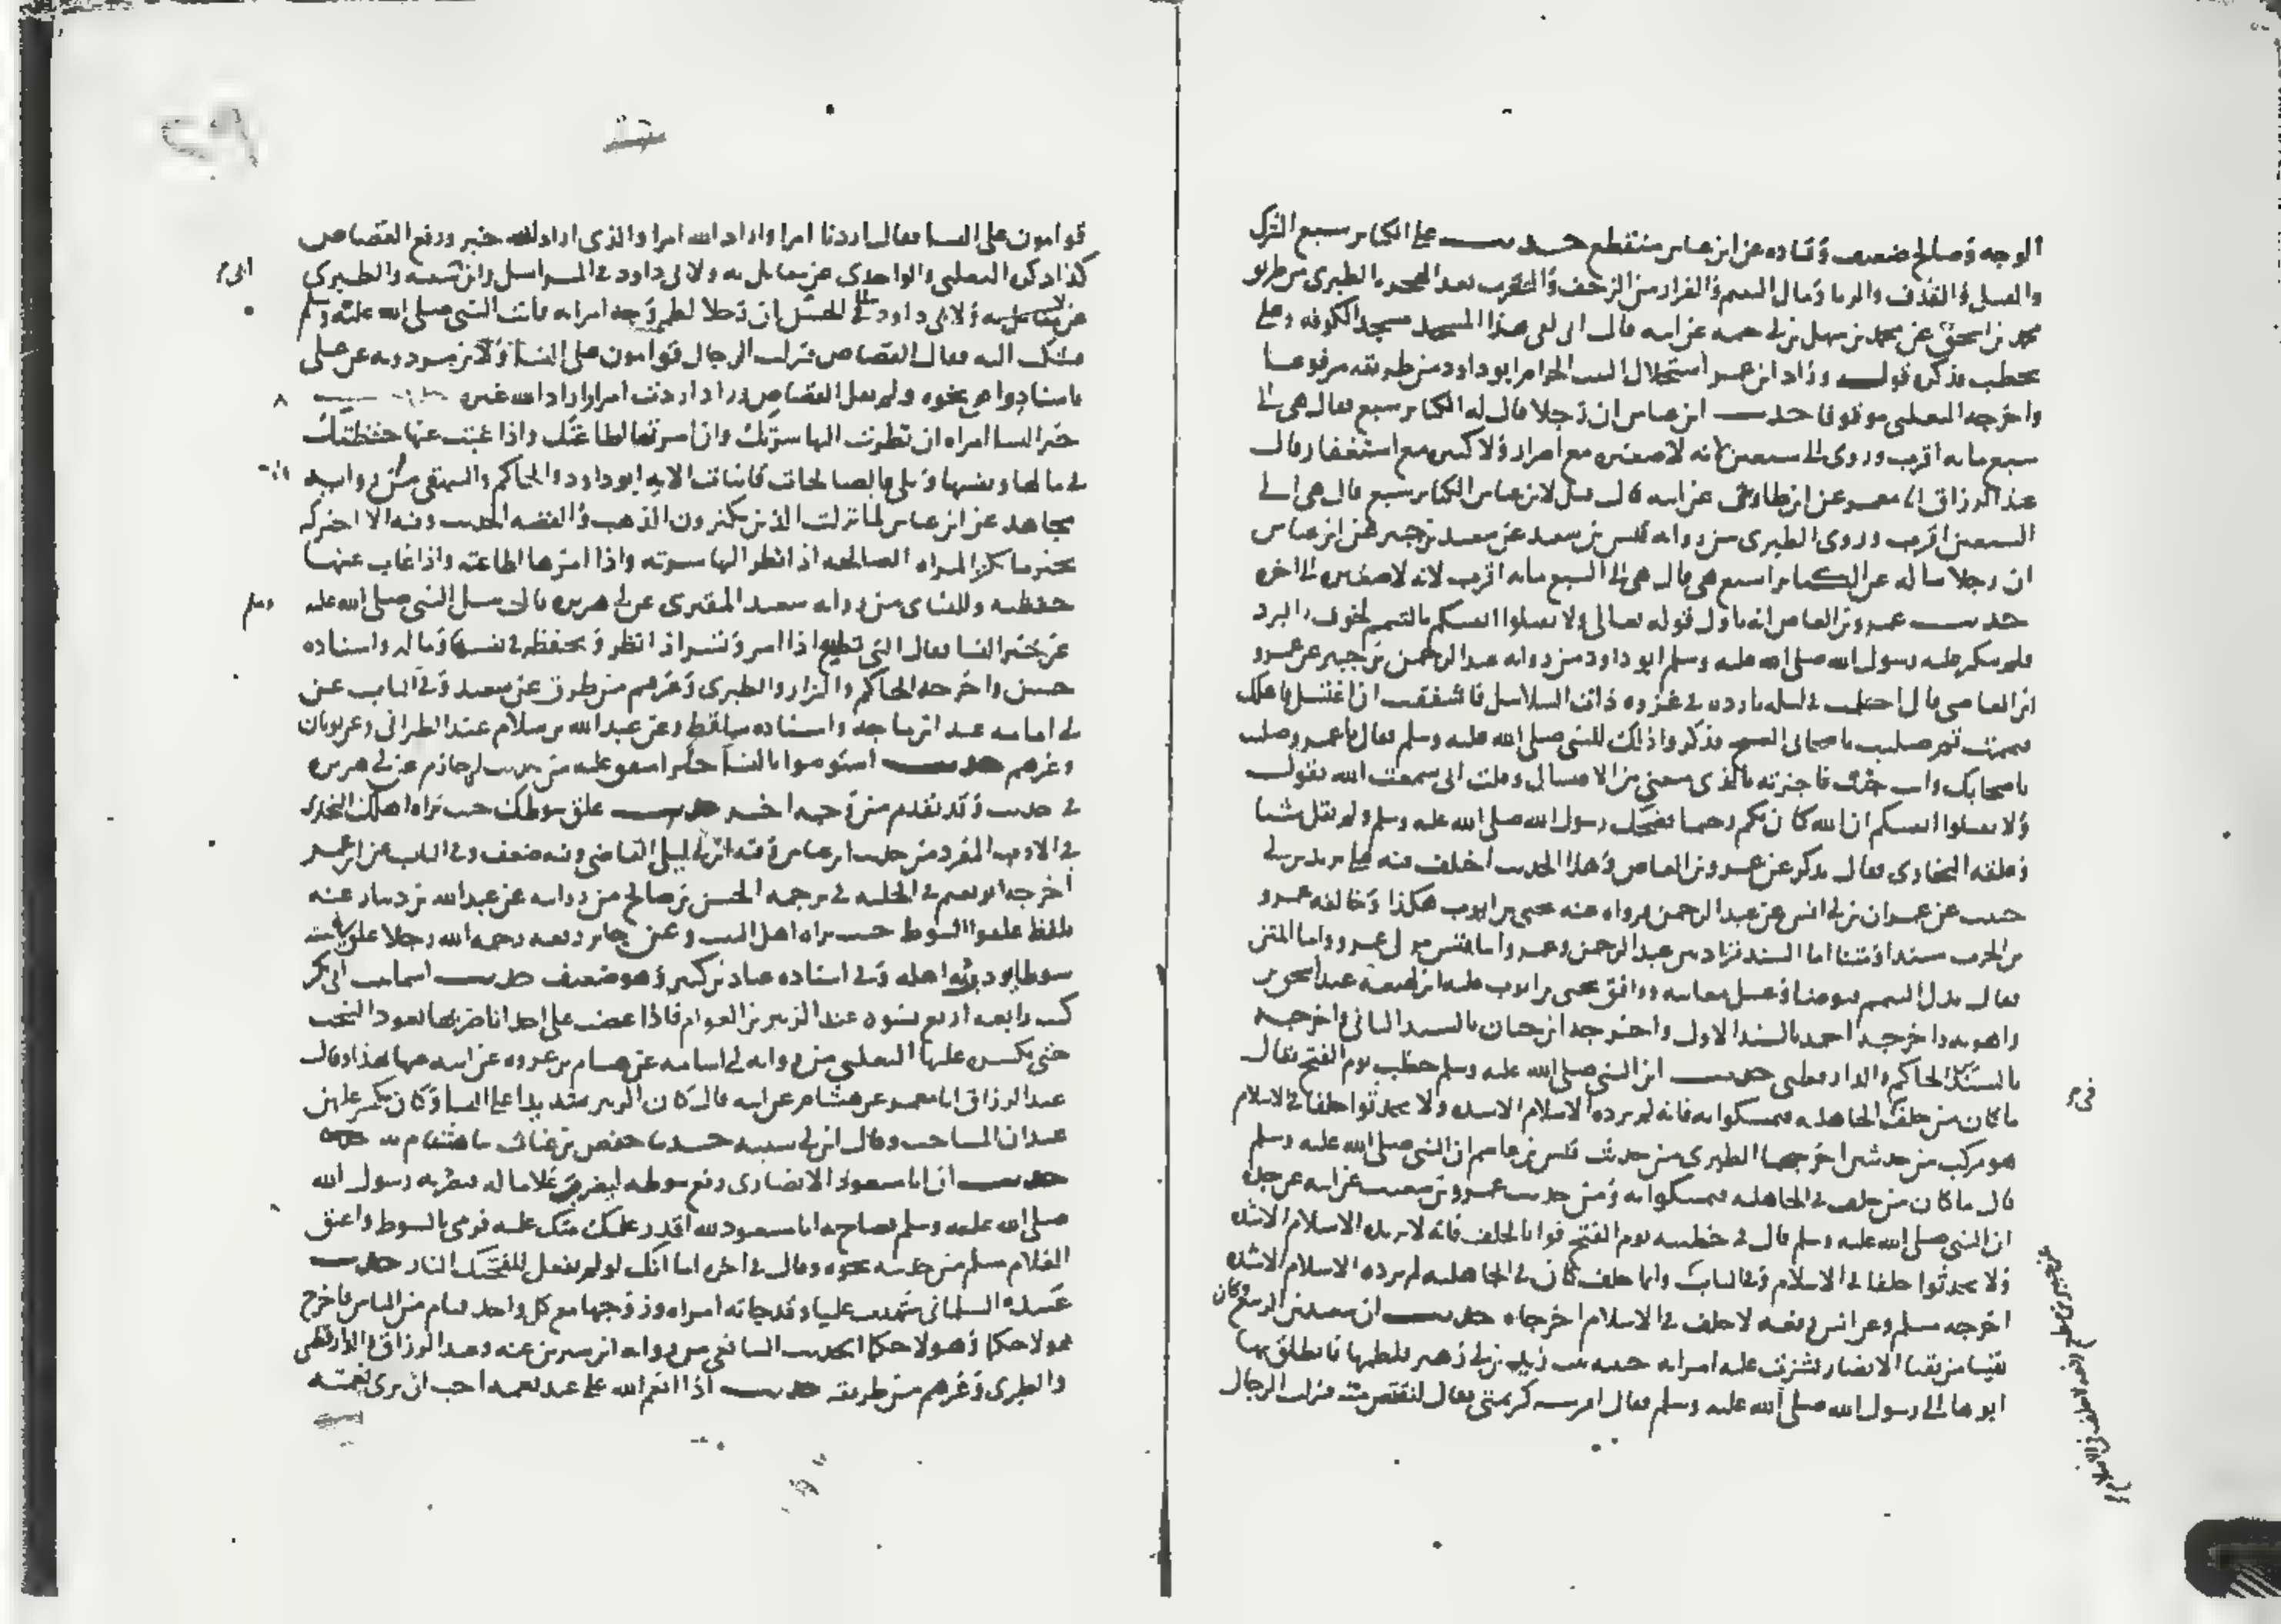 الوجه وصالح ضعيف وقتاده عن ابن عباس منقطع حديث على الكبائر سبع الشرك
والقتل والقذف والربا ومال اليتيم والفرار من الزحف والتعرب بعد الهجره الطبرى من طريق
محمد بن اسحق عن محمد بن سهل بن ابى حثمه عن ابيه قال انى لفى هذا المسجد مسجد الكوفه وعلى
يخطب فذكره قوله وزاد ابن عمر استحلال البيت الحرام ابو داود من طريقه مرفوعا
واخرجه الثعلبى موقوفا حديث ابن عباس ان رجلا قال له الكبائر سبع فقال هى الى
سبع مايه اقرب وروى الى سبعين لانه لا صغيره مع اصرار ولا كبيره مع استغفار قال
عبد الرزاق انا معمر عن ابن طاوس عن ابيه قال قيل لابن عباس الكبائر سبع قال هى الى
السبعين اقرب وروى الطبرى من روايه قيس بن سعد عن سعيد بن جبير عن ابن عباس
ان رجلا ساله عن الكبائر اسبع هى قال هى الى السبع مايه اقرب لانه لا صغيره الى اخره
حديث عمرو بن العاص انه تاول قوله تعالى ولا تقتلوا انفسكم بالتيمم لخوف البرد
فلم ينكر عليه رسول الله صلى الله عليه وسلم ابو داود من روايه عبد الرحمن بن جبير عن عمرو
ابن العاصى قال احتلمت فى ليله بارده فى غزوه ذات السلاسل فاشفقت ان اغتسل فاهلك
فتيممت ثم صليت باصحابى الصبح فذكروا ذلك للنبى صلى الله عليه وسلم فقال يا عمرو صليت
باصحابك وانت جنب فاخبرته بالذى منعنى من الاغتسال وقلت انى سمعت الله يقول
ولا تقتلوا انفسكم ان الله كان بكم رحيما فضحك رسول الله صلى الله عليه وسلم ولم يقل شيا
وعلقه البخارى فقال يذكر عن عمرو بن العاص وهذا الحديث اختلف فيه على يزيد بن ابى
حبيب عن عمران بن ابى انس عن عبد الرحمن فرواه عنه يحيى بن ايوب هكذا وخالفه عمرو
بن الحرث سندا ومتنا اما السند فزاد بين عبد الرحمن وعمرو ابا قيس مولى عمرو واما المتن
فقال بدل التيمم فتوضا وغسل مغابنه ووافق يحيى بن ايوب عليه ابن لهيعه عند اسحق بن
راهويه واخرجه احمد بالسند الاول واخرجه ابن حبان بالسند الثانى واخرجه
بالسندين الحاكم والدارقطنى حديث ان النبى صلى الله عليه وسلم خطب يوم الفتح فقال
ما كان من حلف فى الجاهليه فتمسكوا به فانه لم يزده الاسلام الا شده ولا تحدثوا حلفا فى الاسلام
هو مركب من حديثين اخرجهما الطبرى من حديث قيس بن عاصم ان النبى صلى الله عليه وسلم
قال ما كان من حلف فى الجاهليه فتمسكوا به ومن حديث عمرو بن شعيب عن ابيه عن جده
ان النبى صلى الله عليه وسلم قال فى خطبته يوم الفتح فوا بالحلف فانه لا يزيده الاسلام الا شده
ولا تحدثوا حلفا فى الاسلام وفى الباب وايما حلف كان فى الجاهليه لم يزده الاسلام الا شده
اخرجه مسلم وعن انس رفعه لا حلف فى الاسلام اخرجاه حديث ان سعد بن الربيع وكان
نقيبا من نقبا الانصار نشزت عليه امراته حبيبه بنت زيد بن ابى زهير فلطمها فانطلق بها
ابوها الى رسول الله صلى الله عليه وسلم فقال افرشته كريمتى فقال لتقتص منه فنزلت الرجال
قوامون على النسا فقال اردنا امرا واراد الله امرا والذى اراد الله خير ورفع القصاص
كذا ذكره الثعلبى والواحدى عن مقاتل به ولابى داود فى المراسيل وابن ابى شيبه والطبرى
عن الحسن ان رجلا لطم وجه امراته فاتت النبى صلى الله عليه وسلم
فشكت اليه فقال القصاص فنزلت الرجال قوامون على النسا ولابن مردويه عن على
باسناد واهى نحوه ولم يقل القصاص وزاد اردت امرا واراد الله غيره
خير النسا امراه ان نظرت اليها سرتك وان امرتها اطاعتك واذا غبت عنها حفظتك
فى مالها ونفسها وتلى فالصالحات قانتات الايه ابو داود والحاكم والبيهقى من روايه
مجاهد عن ابن عباس لما نزلت الذين يكنزون الذهب والفضه الحديث وفيه الا اخبركم
بخير ما يكنز المراه الصالحه اذا نظر اليها سرته واذا امرها اطاعته واذا غاب عنها
حفظته وللنساى من روايه سعيد المقبرى عن ابى هريره قال سئل النبى صلى الله عليه وسلم
عن خير النسا فقال التى تطيع اذا امر وتسر اذا نظر وتحفظه فى نفسها وماله واسناده
حسن واخرجه الحاكم والبزار والطبرى وغيرهم من طرق عن سعيد وفى الباب عن
ابى امامه عند ابن ماجه واسناده ساقط وعن عبد الله بن سلام عند الطبرانى وعن ثوبان
وغيرهم حديث استوصوا بالنسا خيرا متفق عليه من حديث ابى حازم عن ابى هريره
فى حديث وقد تقدم من وجه اخر حديث علق سوطك حيث يراه اهلك البخارى
فى الادب المفرد من حديث ابن عباس وفيه ابن ابى ليلى القاضى وفيه ضعف وفى الباب عن ابن عمر
اخرجه ابو نعيم فى الحليه فى ترجمه الحسن بن صالح من روايته عن عبد الله بن دينار عنه
بلفظ علقوا السوط حيث يراه اهل البيت وعن جابر رفعه رحم الله رجلا علق فى بيته
سوطا يودب به اهله وفى اسناده عباد بن كثير وهو ضعيف حديث اسما بنت ابى بكر
كنت رابعه اربع نسوه عند الزبير بن العوام فاذا غضب على احدانا ضربها بعود المشجب
حتى يكسره عليها الثعلبى من روايه ابى اسامه عن هشام بن عروه عن ابيه عنها بهذا وقال
عبد الرزاق انا معمر عن هشام عن ابيه قال كان الزبير شديدا على النسا وكان يكسر عليهن
عيدان المشاجب وقال ابن ابى شيبه حدثنا حفص بن غياث ثنا هشام به
حديث ان ابا مسعود الانصارى رفع سوطه ليضرب غلاما له فبصر به رسول الله
صلى الله عليه وسلم فصاح به ابا مسعود لله اقدر عليك منك عليه فرمى بالسوط واعتق
الغلام مسلم من حديثه نحوه وقال فى اخره اما انك لو لم تفعل للفحتك النار حديث
عبيده السلمانى شهدت عليا وقد جاته امراه وزوجها مع كل واحد فيام من الناس فاخرج
هولا حكما وهولا حكما الحديث الشافعى من روايه ابن سيرين عنه وعبد الرزاق والدارقطنى
والطبرى وغيرهم من طريقه حديث اذا انعم الله على عبد نعمه احب ان ترى نعمته